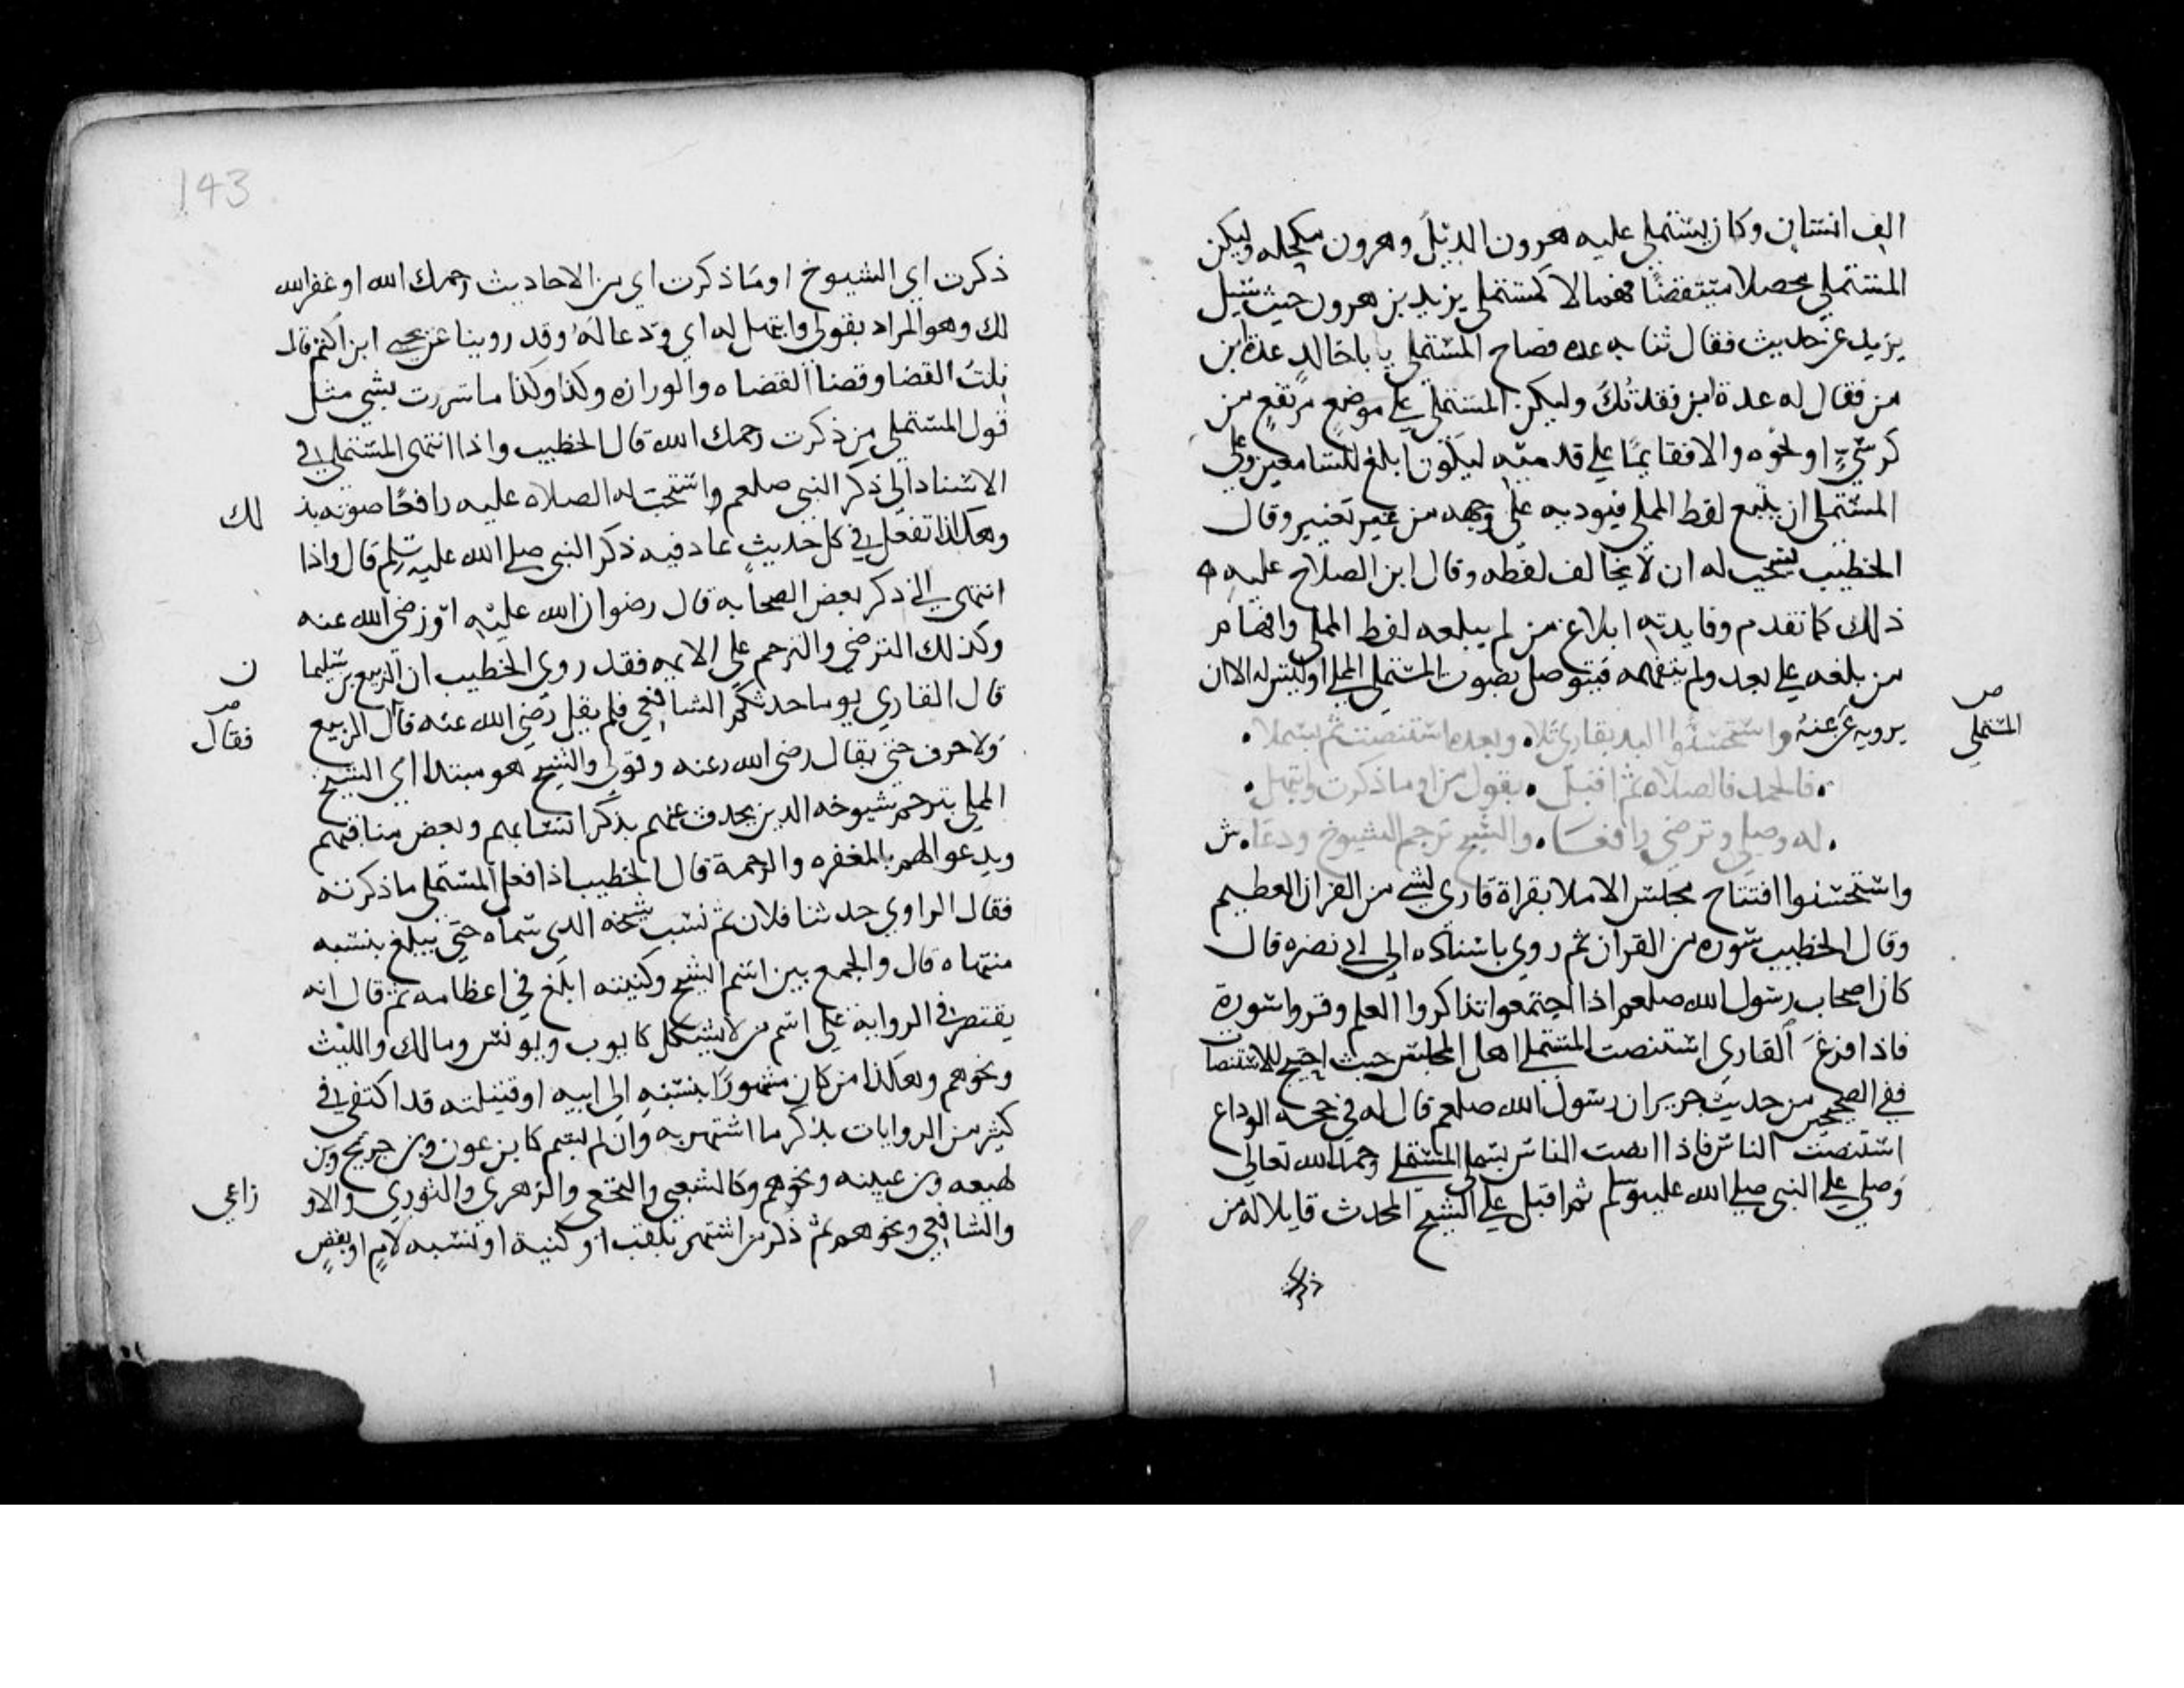 الف انسان وكان يستملي عليه هرون الديك وهرون مكحله وليكن
المستملي محصلا متيقضا فهما لا كمستملي يزيد بن هرون حيث سيل
يزيد عن حديث فقال ثنا به عدة فصاح المستملي يا باخالد عدة ابن
من فقال له عدة ابن فقدتك وليكن المستملي على موضع مرتفع من
كرسي او نحوه والا فقايما على قدميه ليكون ابلغ للسامعين وعلى
المستملي ان يتبع لفظ المملي فيوديه على وجهه من غير تغيير وقال
الخطيب يستحب له ان لا يخالف لفظه وقال ابن الصلاح عليه
ذلك كما تقدم وفايدته ابلاغ من لم يبلغه لفظ المملي وافهام
من بلغه على بعد ولم يتفهمه فيتوصل بصوت المستملي اوليس له الا ان
المستملي
يرويه عن عنه واستحسنوا البد بقاري تلا وبعده استنصت ثم بسملا
فالحمد فالصلاه ثم اقبل يقول من او ما ذكرت وابتهل
له وصلي وترضي رافعا والشيخ ترجم الشيوخ ودعا ش
واستحسنوا افتتاح مجلس الاملا بقراة قاري لشي من القران العظيم
وقال الخطيب سوره من القران ثم روي باسناده الى ابي نضره قال
كان اصحاب رسول الله صلعم اذا اجتمعوا تذاكروا العلم وقروا سورة
فاذا فرغ القاري استنصت المستملي اهل المجلس حيث احتيج للاستنصات
ففي الصحيحين من حديث جرير ان رسول الله صلعم قال له في حجه الوداع
استنصت الناس فاذا انصت الناس بسمل المستملي وحمد الله تعالى
وصلي على النبي صلى الله عليه وسلم ثم اقبل على الشيخ المحدث قايلا له من
ذكرت
143
ذكرت اي الشيوخ او ما ذكرت اي من الاحاديث رحمك الله او غفر الله
لك وهو المراد بقولي وابتهل له اي ودعا له وقد روينا عن يحيى ابن اكثم قال
نلت القضا وقضا القضاه والوزاره وكذا وكذا ما سررت بشي مثل
قول المستملي من ذكرت رحمك الله قال الخطيب واذا انتهى المستملي في
الاسناد الى ذكر النبي صلعم واستحب له الصلاه عليه رافعا صوته بذ
لك
وهكذا تفعل في كل حديث عاد فيه ذكر النبي صلى الله عليه وسلم قال واذا
انتهى الى ذكر بعض الصحابه قال رضوان الله عليه او رضى الله عنه
وكذلك الترضي والترحم على الايمه فقد روى الخطيب ان الربيع بن سليما
ن
قال القاري يوما حدثكم الشافعي فلم يقل رضي الله عنه قال الربيع
فقال
ولا حرف حتى يقال رضى الله عنه وقولي والشيخ هو مبتدا اي الشيخ
المملي يترحم شيوخه الذين يحدث عنهم بذكر انسابهم وبعض مناقبهم
ويدعوا لهم بالمغفره والرحمة قال الخطيب اذا فعل المستملي ما ذكرته
فقال الراوي حدثنا فلان ثم نسب شيخه الذي سماه حتى يبلغ بنسبه
منتهاه قال والجمع بين اسم الشيخ وكنيته ابلغ في اعظامه ثم قال انه
يقتصر في الروايه على اسم من لا يشكل كايوب ويونس ومالك والليث
ونحوهم وهكذا من كان مشهورا بنسبه الى ابيه او قبيلته قد اكتفي في
كثير من الروايات بذكر ما اشتهر به وان لم يسم كابن عون وبن جريج وبن
لهيعه وبن عيينه ونحوهم وكالشعبي والنخعي والزهري والثوري والاو
زاعي
والشافعي ونحوهم ثم ذكر من اشتهر بلقب او كنية او نسبه لام او بنقص